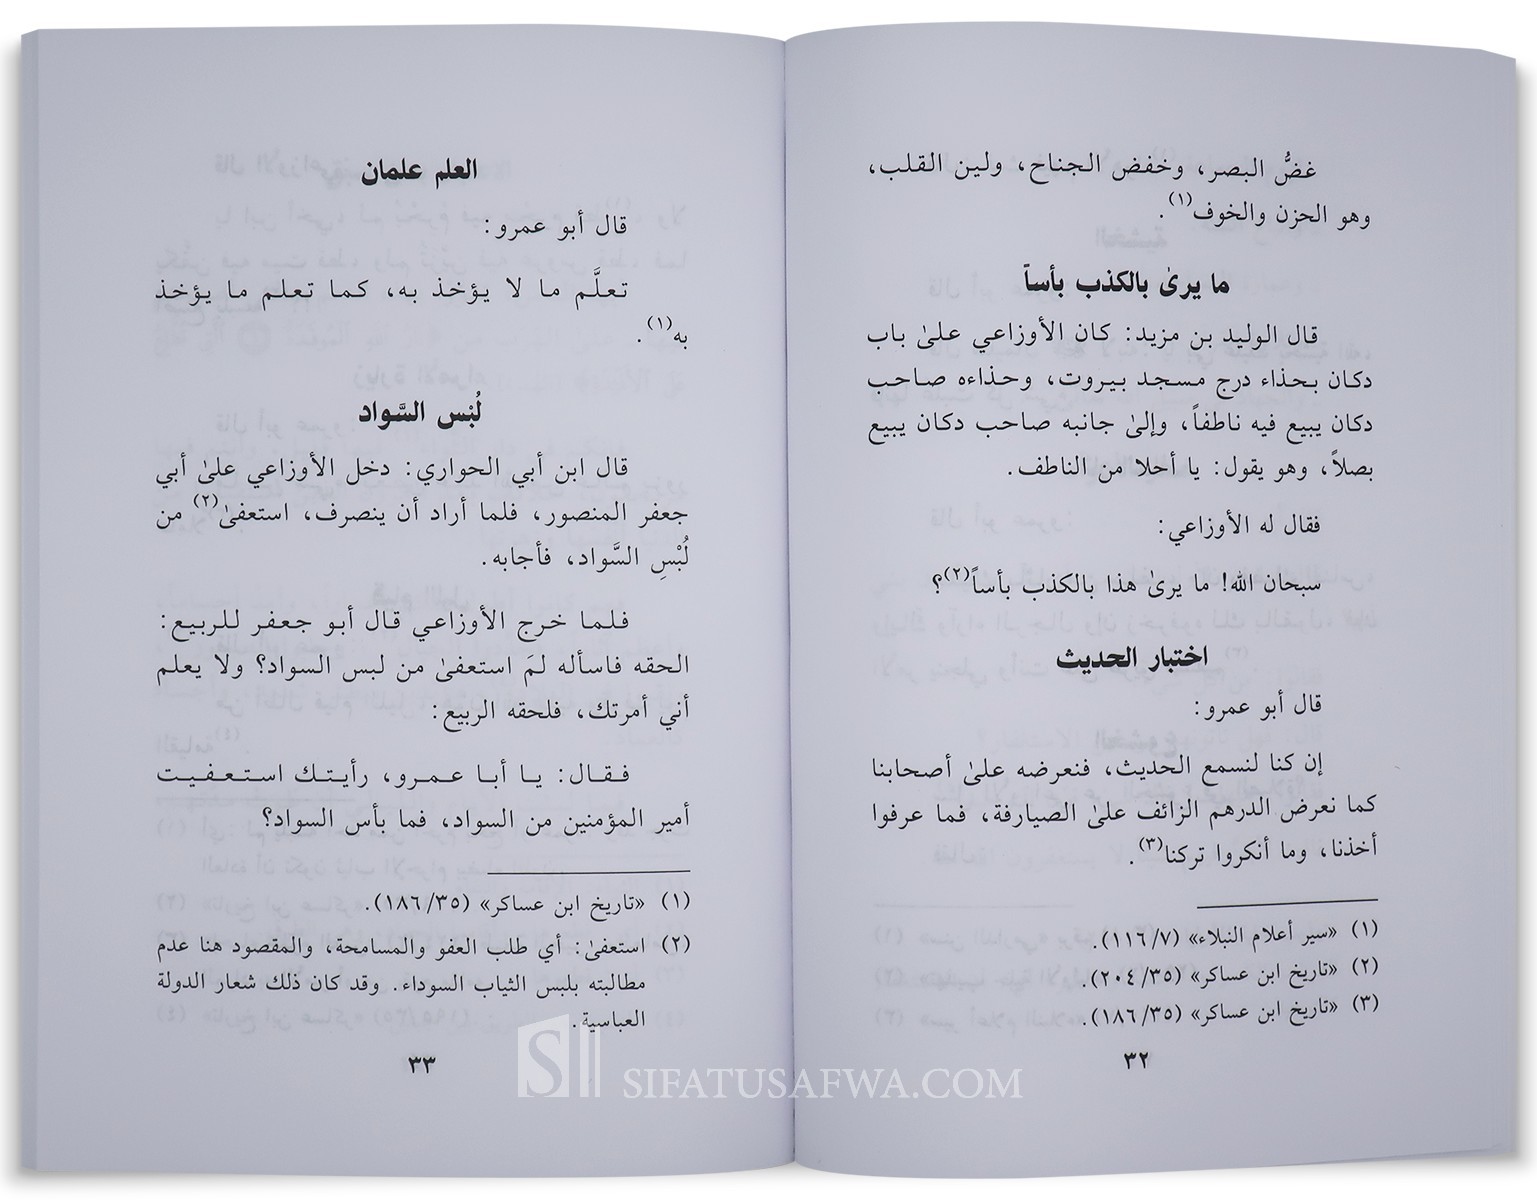 غضُّ البصر، وخفض الجناح، ولين القلب،
وهو الحزن والخوف(١).
ما يرىٰ بالكذب بأساً
قال الوليد بن مزيد: كان الأوزاعي علىٰ باب
دكان بحذاء درج مسجد بيروت، وحذاءه صاحب
دكان يبيع فيه ناطفاً، وإلىٰ جانبه صاحب دكان يبيع
بصلاً، وهو يقول: يا أحلا من الناطف.
فقال له الأوزاعي:
سبحان الله! ما يرىٰ هذا بالكذب بأساً(٢)؟
اختبار الحديث
قال أبو عمرو:
إن كنا لنسمع الحديث، فنعرضه علىٰ أصحابنا
كما نعرض الدرهم الزائف علىٰ الصيارفة، فما عرفوا
أخذنا، وما أنكروا تركنا(٣).
(١) «سير أعلام النبلاء» (١١٦/٧).
(٢) «تاريخ ابن عساكر» (٢٠٤/٣٥).
(٣) «تاريخ ابن عساكر» (١٨٦/٣٥).
٣٢
العلم علمان
قال أبو عمرو:
تعلَّم ما لا يؤخذ به، كما تعلم ما يؤخذ
به(١).
لُبْس السَّواد
قال ابن أبي الحواري: دخل الأوزاعي علىٰ أبي
جعفر المنصور، فلما أراد أن ينصرف، استعفىٰ(٢) من
لُبْسِ السَّواد، فأجابه.
فلما خرج الأوزاعي قال أبو جعفر للربيع:
الحقه فاسأله لمَ استعفىٰ من لبس السواد؟ ولا يعلم
أني أمرتك، فلحقه الربيع:
فقال: يا أبا عمرو، رأيتك استعفيت
أمير المؤمنين من السواد، فما بأس السواد؟
(١) «تاريخ ابن عساكر» (١٨٦/٣٥).
(٢) استعفىٰ: أي طلب العفو والمسامحة، والمقصود هنا عدم
مطالبته بلبس الثياب السوداء. وقد كان ذلك شعار الدولة
العباسية.
٣٣
S SIFATUSAFWA.COM